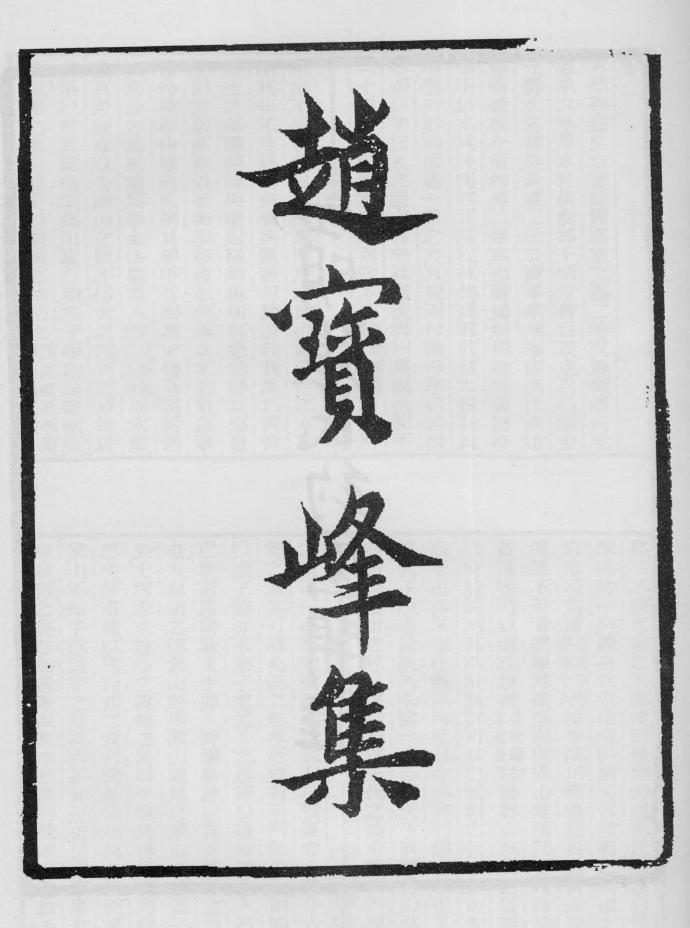 趙寶峰集